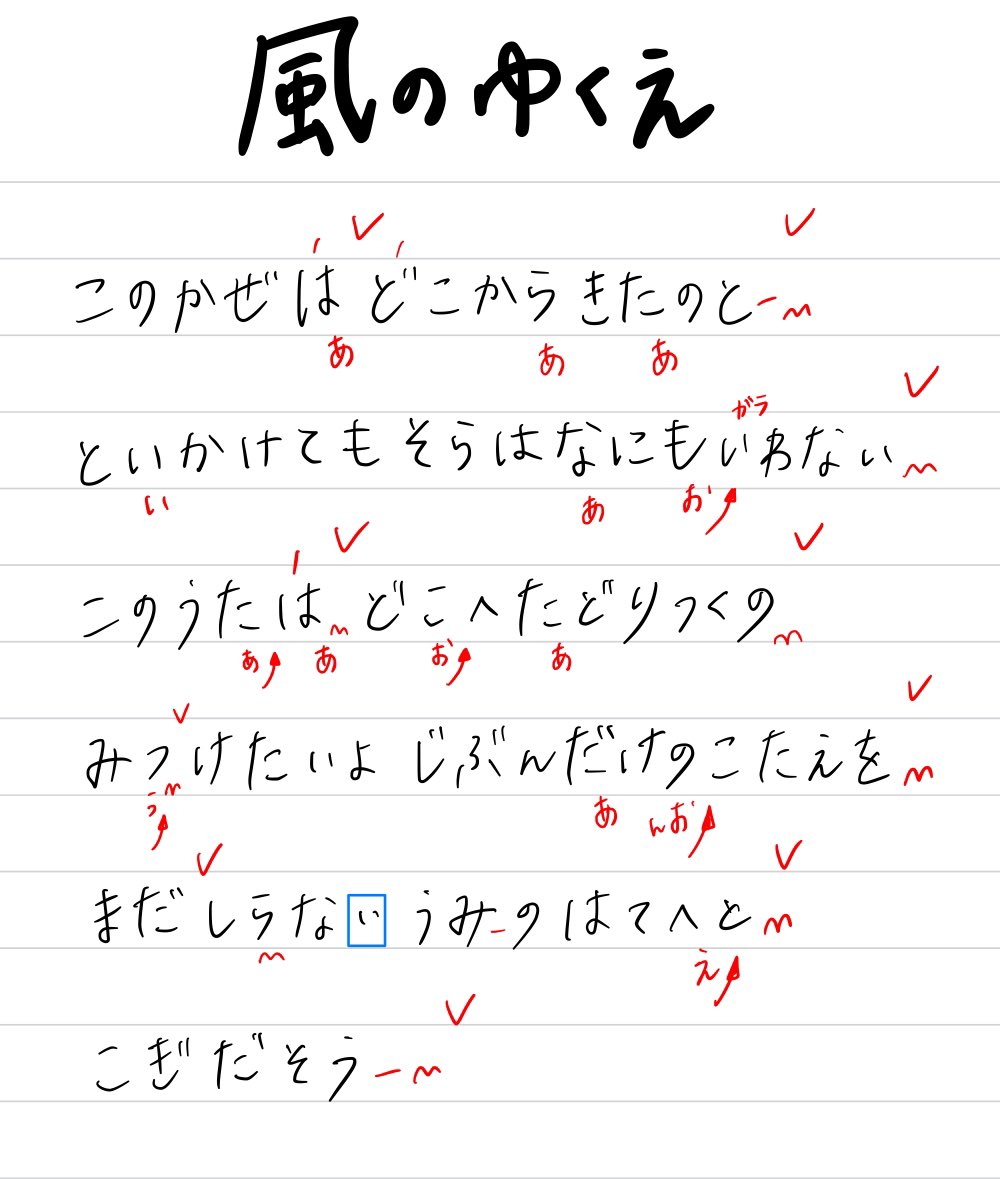 風のゆくえ
このかぜは どこから きたのと
あ あ あ
がラ
といかけても そらはなにもいわない
い あ お
このうたは どこへたどりつくの
あ あ お あ
みつけたいよ じぶんだけのこたえを
う あ んお
まだしらない うみのはてへと
え
こぎだそう